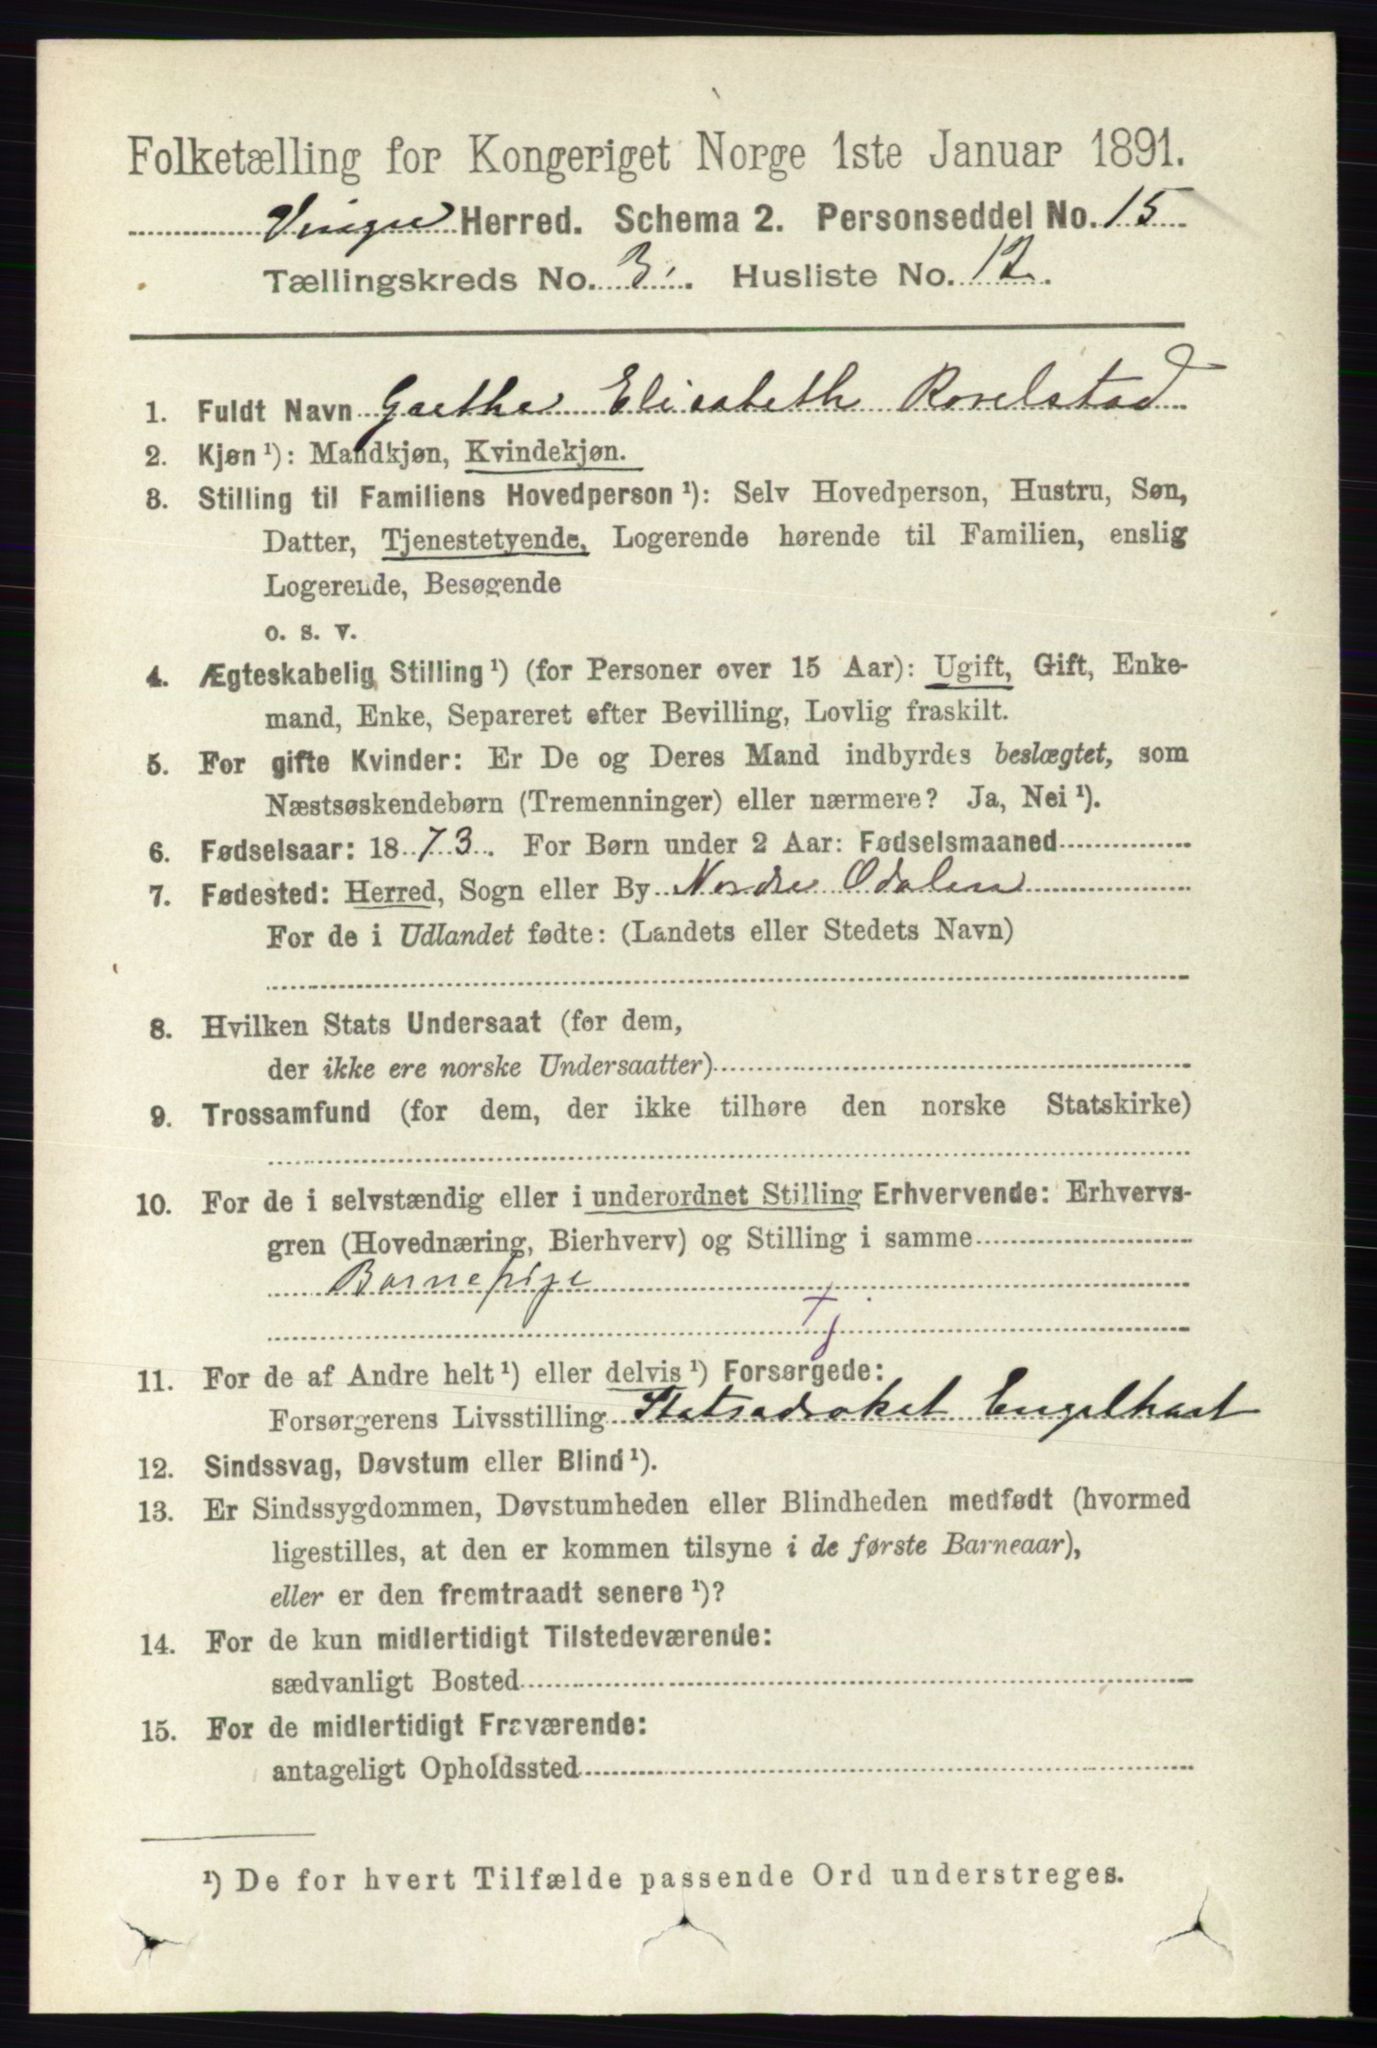 Folketælling for Kongeriget Norge 1ste Januar 1891.
Vinger Herred. Schema 2. Personseddel No. 15
Tællingskreds No. 3. Husliste No. 12.
1. Fuldt Navn Grethe Elisabeth Rovelstad
2. Kjøn ¹): Mandkjøn, Kvindekjøn.
3. Stilling til Familiens Hovedperson ¹): Selv Hovedperson, Hustru, Søn,
Datter, Tjenestetyende, Logerende hørende til Familien, enslig
Logerende, Besøgende
o. s. v.
4. Ægteskabelig Stilling ¹) (for Personer over 15 Aar): Ugift, Gift, Enke-
mand, Enke, Separeret efter Bevilling, Lovlig fraskilt.
5. For gifte Kvinder: Er De og Deres Mand indbyrdes beslægtet, som
Næstsøskendebørn (Tremenninger) eller nærmere? Ja, Nei ¹).
6. Fødselsaar: 1873. For Børn under 2 Aar: Fødselsmaaned
7. Fødested: Herred, Sogn eller By Nordre Odalen
For de i Udlandet fødte: (Landets eller Stedets Navn)
8. Hvilken Stats Undersaat (for dem,
der ikke ere norske Undersaatter)
9. Trossamfund (for dem, der ikke tilhøre den norske Statskirke)
10. For de i selvstændig eller i underordnet Stilling Erhvervende: Erhvervs-
gren (Hovednæring, Bierhverv) og Stilling i samme
Barnepige
tj
11. For de af Andre helt ¹) eller delvis ¹) Forsørgede:
Forsørgerens Livsstilling Statsadvoket Engelhart
12. Sindssvag, Døvstum eller Blind ¹).
13. Er Sindssygdommen, Døvstumheden eller Blindheden medfødt (hvormed
ligestilles, at den er kommen tilsyne i de første Barneaar),
eller er den fremtraadt senere ¹)?
14. For de kun midlertidigt Tilstedeværende:
sædvanligt Bosted
15. For de midlertidigt Fraværende:
antageligt Opholdssted
¹) De for hvert Tilfælde passende Ord understreges.